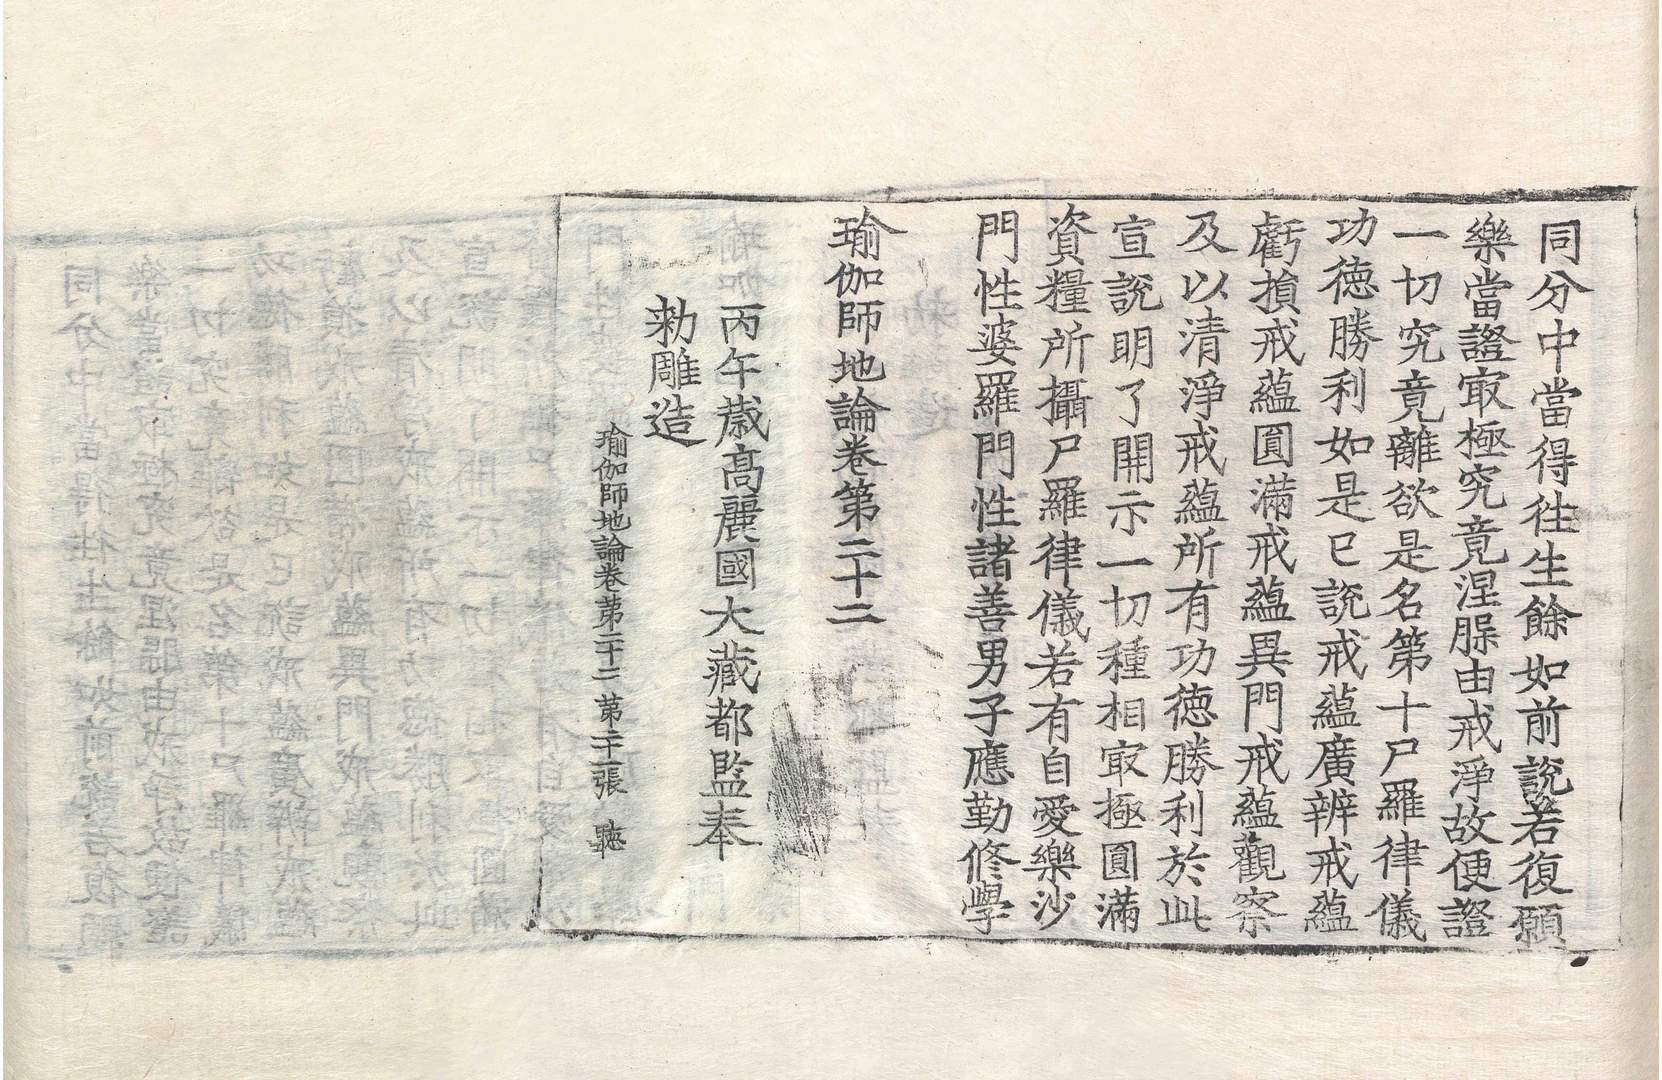 同分中當得徃生餘如前說若復願
樂當證㝡極究竟涅脲由戒淨故便證
一切究竟離欲是名第十尸羅律儀
功德勝利如是已說戒蘊廣辨戒蘊
虧損戒蘊圓滿戒蘊異門戒蘊觀察
及以清淨戒蘊所有功德勝利於此
宣說明了開示一切種相㝡極圓滿
資糧所攝尸羅律儀若有自愛樂沙
門性婆羅門性諸善男子應勤修學
瑜伽師地論卷第二十二
丙午歲高麗國大藏都監奉
勑雕造
瑜伽師地論卷苐二十二 苐二十一張